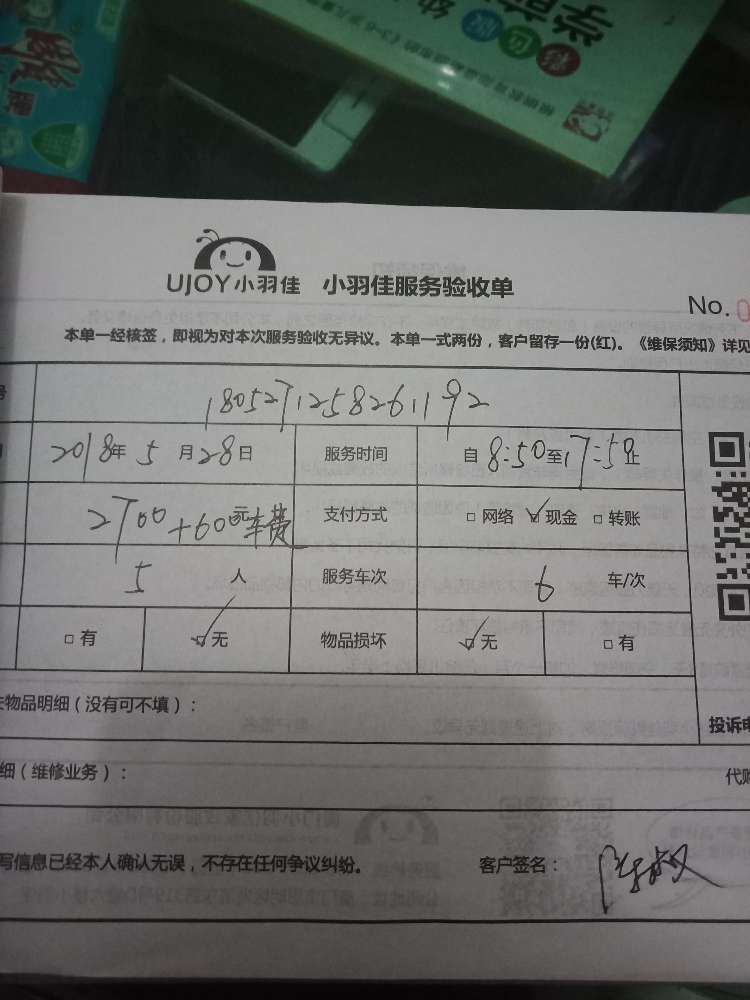 UJOY小羽佳 小羽佳服务验收单
No.0
本单一经核签，即视为对本次服务验收无异议。本单一式两份，客户留存一份(红)。《维保须知》详见
号 1805271258261192
2018年5月28日 服务时间 自8:50至17:50止
2700+600元车费 支付方式 □网络 ☑现金 □转账
5人 服务车次 6 车/次
□有 ☑无 物品损坏 ☑无 □有
物品明细（没有可不填）：
投诉电
细（维修业务）：
代购
写信息已经本人确认无误，不存在任何争议纠纷。 客户签名：